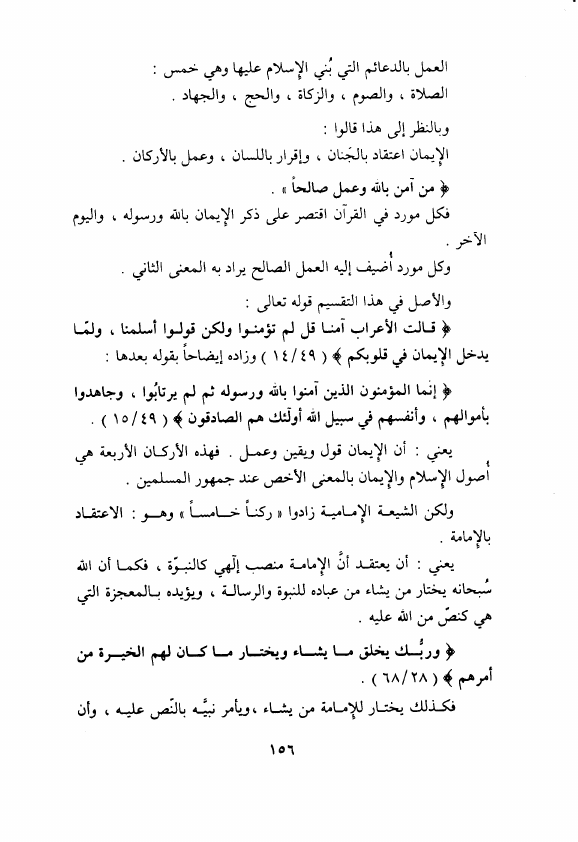 العمل بالدعائم التي بُني الإسلام عليها وهي خمس :
الصلاة ، والصوم ، والزكاة ، والحج ، والجهاد .
وبالنظر إلى هذا قالوا :
الإيمان اعتقاد بالجَنان ، وإقرار باللسان ، وعمل بالأركان .
﴿ من آمن بالله وعمل صالحاً » .
فكل مورد في القرآن اقتصر على ذكر الإيمان بالله ورسوله ، واليوم
الآخر .
وكل مورد أُضيف إليه العمل الصالح يراد به المعنى الثاني .
والأصل في هذا التقسيم قوله تعالى :
﴿ قـالت الأعراب آمنـا قل لم تؤمنـوا ولكن قولـوا أسلمنا ، ولمّـا
يدخل الإيمان في قلوبكم ﴾ ( ١٤/٤٩ ) وزاده إيضاحاً بقوله بعدها :
﴿ إنما المؤمنون الذين آمنوا بالله ورسوله ثم لم يرتابُوا ، وجاهدوا
بأموالهم ، وأنفسهم في سبيل الله أولٰئك هم الصادقون ﴾ ( ١٥/٤٩ ) .
يعني : أن الإيمان قول ويقين وعمـل . فهذه الأركان الأربعة هي
أُصول الإسلام والإيمان بالمعنى الأخص عند جمهور المسلمين .
ولكن الشيعة الإمامية زادوا « ركنـاً خـامسـاً » وهـو : الاعتقـاد
بالإمامة .
يعني : أن يعتقـد أنَّ الإمامـة منصب إلٓهي كالنبوّة ، فكمـا أن الله
سُبحانه يختار من يشاء من عباده للنبوة والرسالـة ، ويؤيده بـالمعجزة التي
هي كنصّ من الله عليه .
﴿ وربُّـك يخلق مـا يشـاء ويختـار مـا كـان لهم الخيـرة من
أمرهم ﴾ ( ٦٨/٢٨ ) .
فكـذلك يختـار للإمـامة من يشـاء ،ويأمر نبيَّـه بالنّص عليـه ، وأن
١٥٦